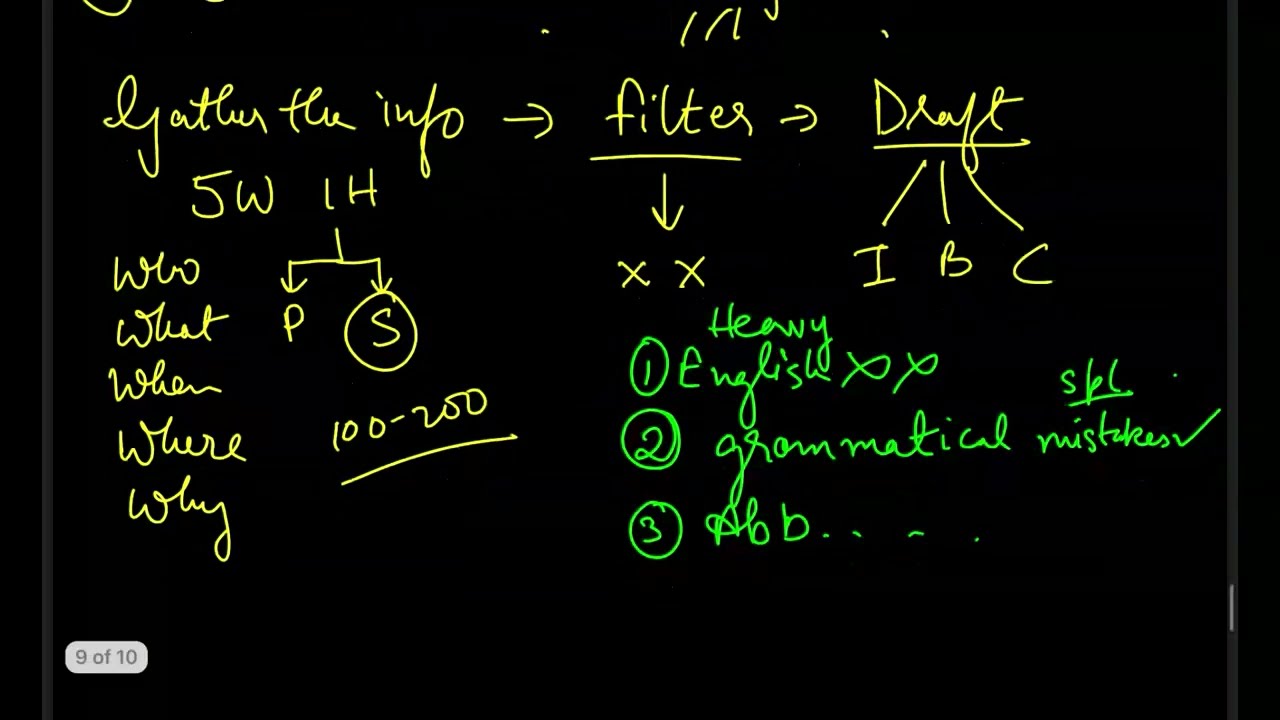 Gather the info → filter → Draft
5W 1H
I B C
x x
Who
What
When
Where
Why
P S
100-200
Heavy
① English xx
spl
② grammatical mistakes✓
③ Abb.. - .
9 of 10